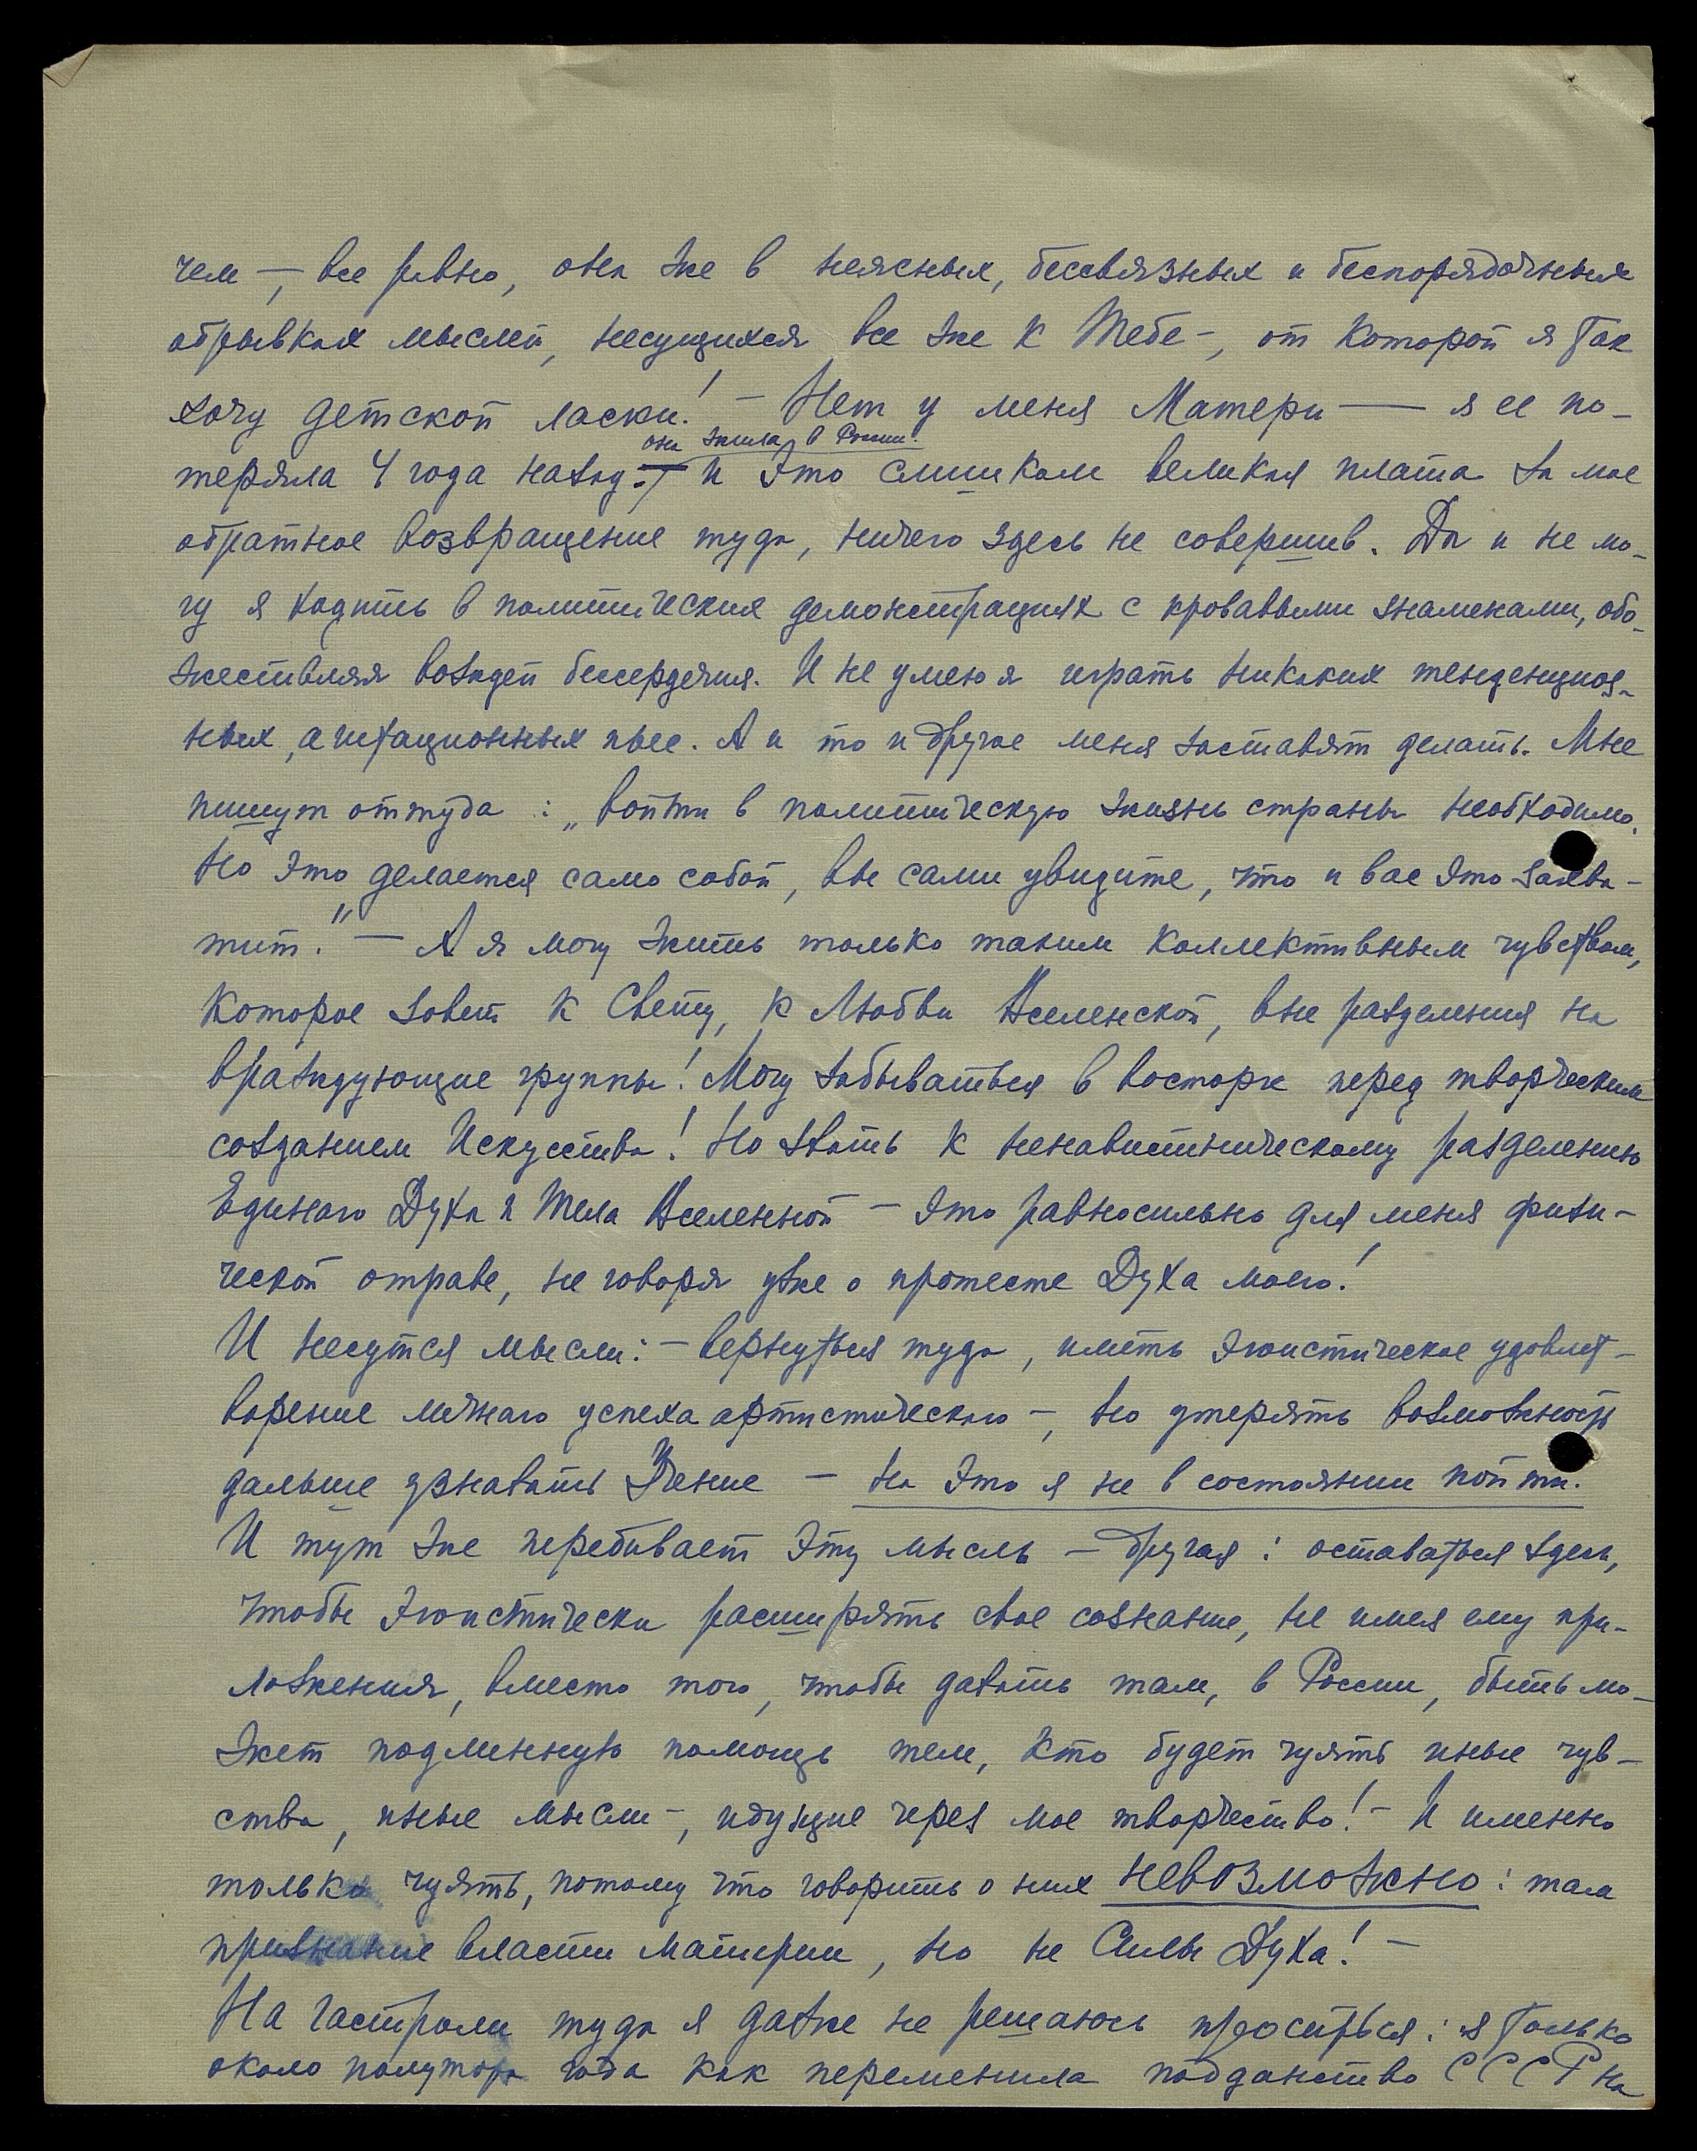 чем —, все равно, она же в неясных, бессвязных и беспорядочных
обрывках мыслей, несущихся все же к Тебе —, от Которой я так
хочу детской ласки! — Нет у меня Матери — я ее по-
она жила в России.
теряла 4 года назад. — И это слишком великая плата за мое
обратное возвращение туда, ничего здесь не совершив. Да и не мо-
гу я ходить в политических демонстрациях с кровавыми знаменами, обо-
жествляя вождей бессердечия. И не умею я играть никаких тенденциоз-
ных, агитационных пьес. А и то и другое меня заставят делать. Мне
пишут оттуда: „войти в политическую жизнь страны необходимо.
Но это делается само собой, вы сами увидите, что и вас это захва-
тит." — А я могу жить только таким коллективным чувством,
которое зовет к Свету, к Любви Вселенской, вне разделения на
враждующие группы! Могу забываться в восторге перед творческим
созданием Искусства! Но звать к ненавистническому разделению
Единаго Духа и Тела Вселенной — это равносильно для меня физи-
ческой отраве, не говоря уже о протесте Духа моего!
И несутся мысли: — вернуться туда, иметь эгоистическое удовлет-
ворение личнаго успеха артистическаго —, но утерять возможность
дальше узнавать Учение — на это я не в состоянии пойти.
И тут же перебивает эту мысль — другая: оставаться здесь,
чтобы эгоистически расширять свое сознание, не имея ему при-
ложения, вместо того, чтобы давать там, в России, быть мо-
жет подлинную помощь тем, кто будет чуять иные чув-
ства, иные мысли —, идущие через мое творчество! — И именно
только чуять, потому что говорить о них невозможно: там
признание власти материи, но не Силы Духа! —
На гастроли туда я даже не решаюсь проситься: я только
около полутора года как переменила подданство СССР на